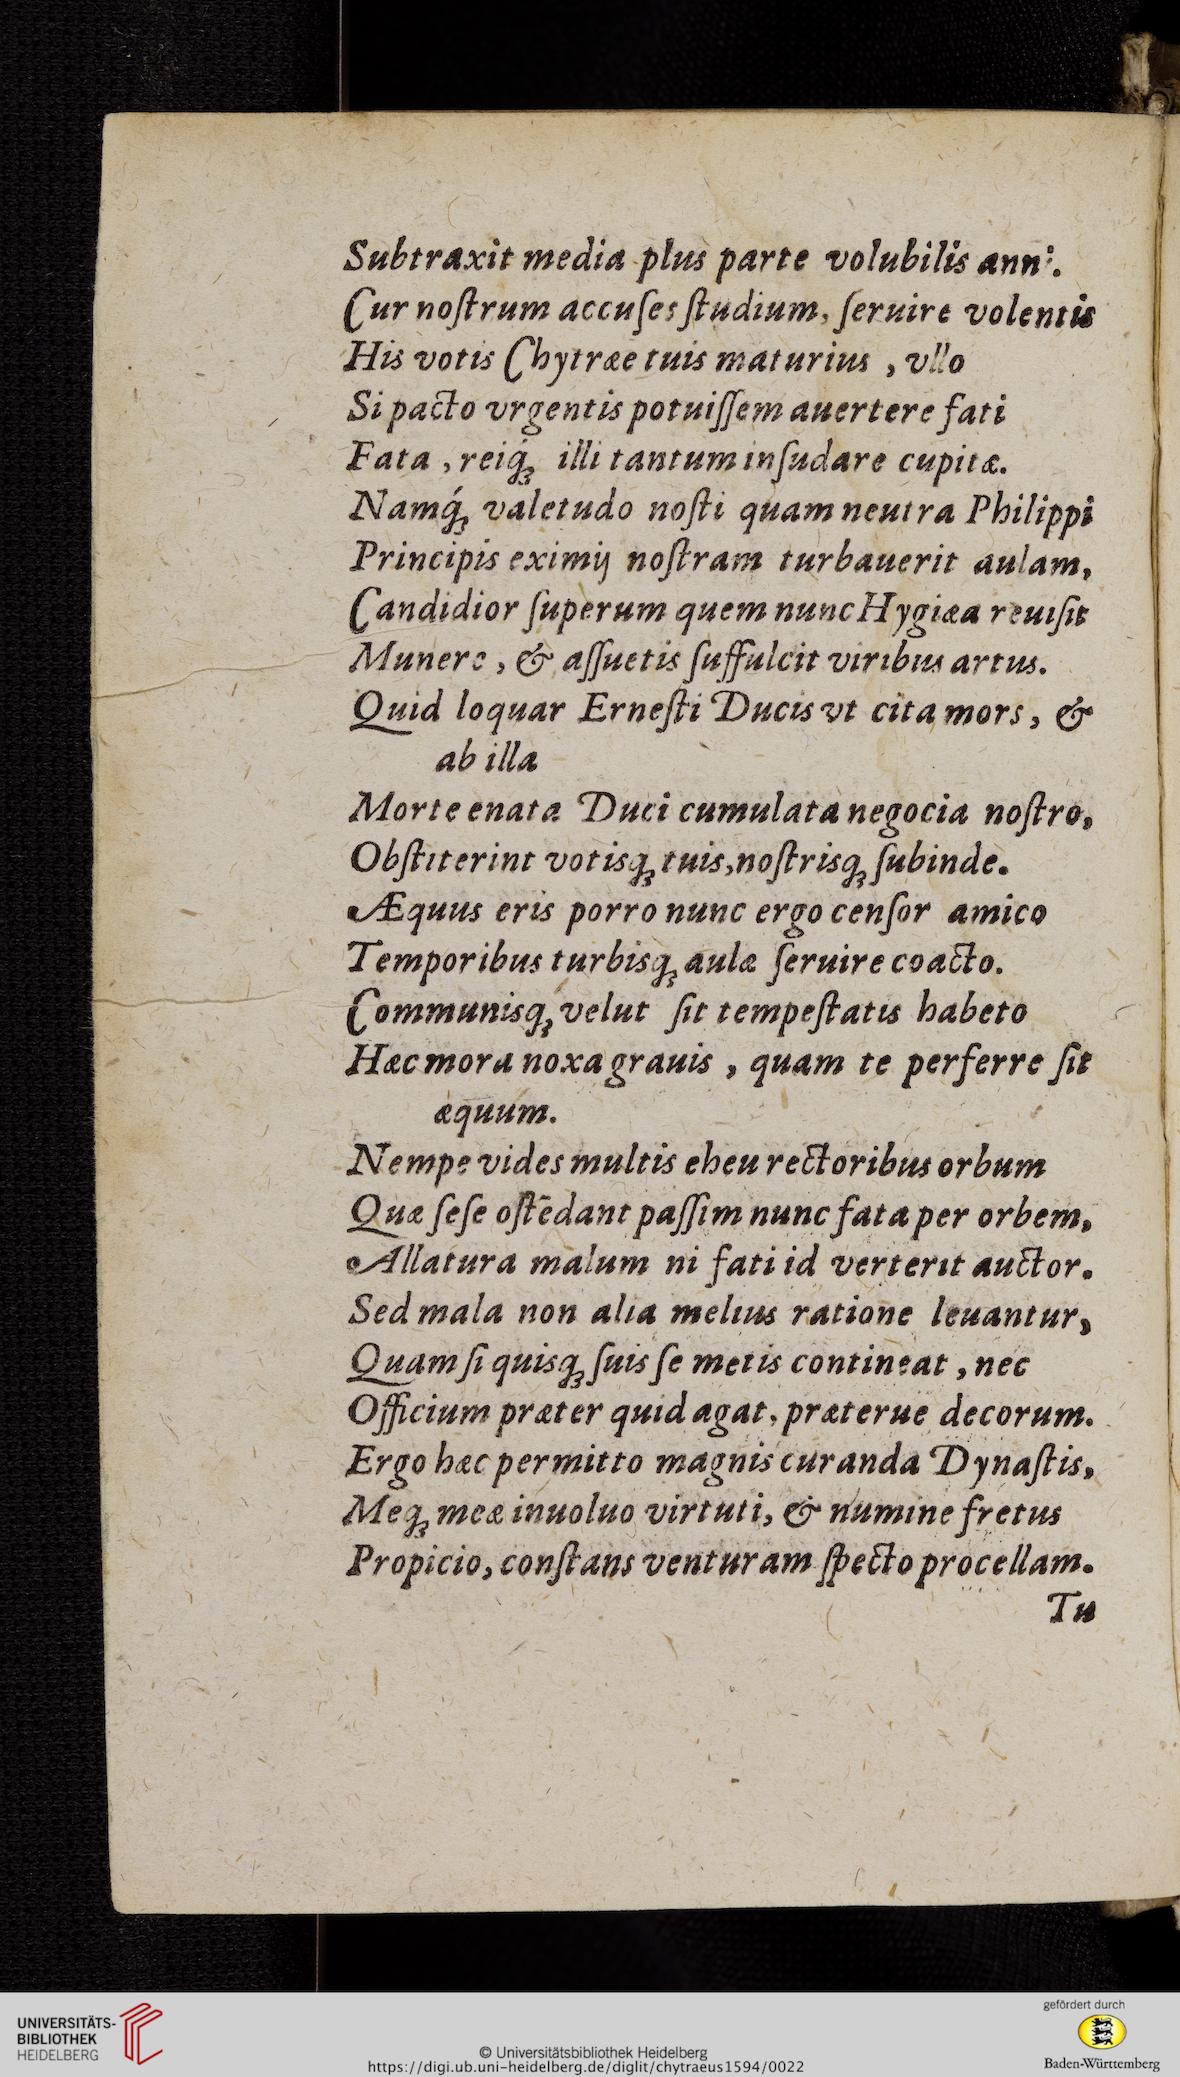 Subtraxit media plus parte volubilis anni.
Cur noſtrum accuſes ſtudium, ſeruire volentis
His votis Chytræe tuis maturius , vllo
Si pacto vrgentis potuiſſem auertere fati
Fata , reiq́ꝫ illi tantum inſudare cupitæ.
Namq́ꝫ valetudo noſti quam neutra Philippi
Principis eximij noſtram turbauerit aulam,
Candidior ſuperum quem nunc Hygiæa reuiſit
Munere , & aſſuetis ſuffulcit viribus artus.
Quid loquar Erneſti Ducis vt cita mors, &
ab illa
Morte enata Duci cumulata negocia noſtro,
Obſtiterint votisqꝫ tuis, noſtrisqꝫ ſubinde.
Æquus eris porro nunc ergo cenſor amico
Temporibus turbisqꝫ aulæ ſeruire coacto.
Communisqꝫ velut ſit tempeſtatis habeto
Hæc mora noxa grauis , quam te perferre ſit
æquum.
Nempe vides multis eheu rectoribus orbum
Quæ ſeſe oſtēdant paſſim nunc fata per orbem,
Allatura malum ni fati id verterit auctor.
Sed mala non alia melius ratione leuantur,
Quam ſi quisqꝫ ſuis ſe metis contineat , nec
Officium præter quid agat, præterue decorum.
Ergo hæc permitto magnis curanda Dynaſtis,
Meqꝫ meæ inuoluo virtuti, & numine fretus
Propicio, conſtans venturam ſpecto procellam.
Tu
UNIVERSITÄTS-
BIBLIOTHEK
HEIDELBERG
© Universitätsbibliothek Heidelberg
https://digi.ub.uni-heidelberg.de/diglit/chytraeus1594/0022
gefördert durch
Baden-Württemberg